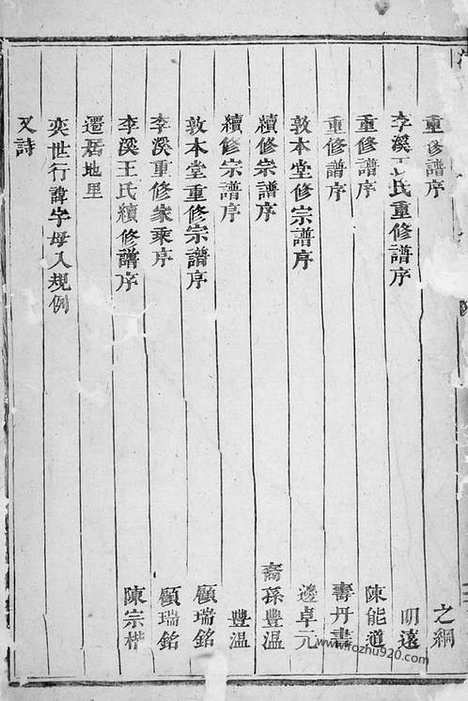 重修譜序 之綱
李溪王氏重修譜序 明遠
重修譜序 陳能道
重修譜序 壽丹書
敦本堂修宗譜序 邊卓元
續修宗譜序 裔孫豐溫
續修宗譜序 豐溫
敦本堂重修宗譜序 顧瑞銘
李溪重修家乘序 顧瑞銘
李溪王氏續修譜序 陳宗楷
遷居地里
奕世行諱字母入規例
又詩
www.fozhu920.com